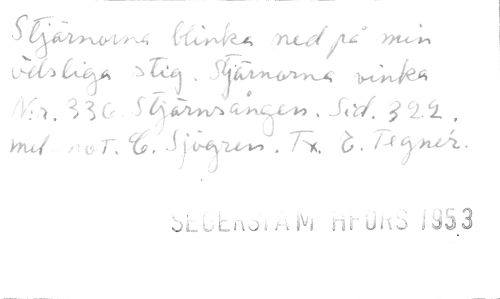 Stjärnorna blinka ned på min
ödsliga stig. Stjärnorna vinka
N:r. 336. Stjärnsången. Sid. 322.
med not. C. Sjögren. Tx. E. Tegnér.
SEGERSTAM HFORS 1953